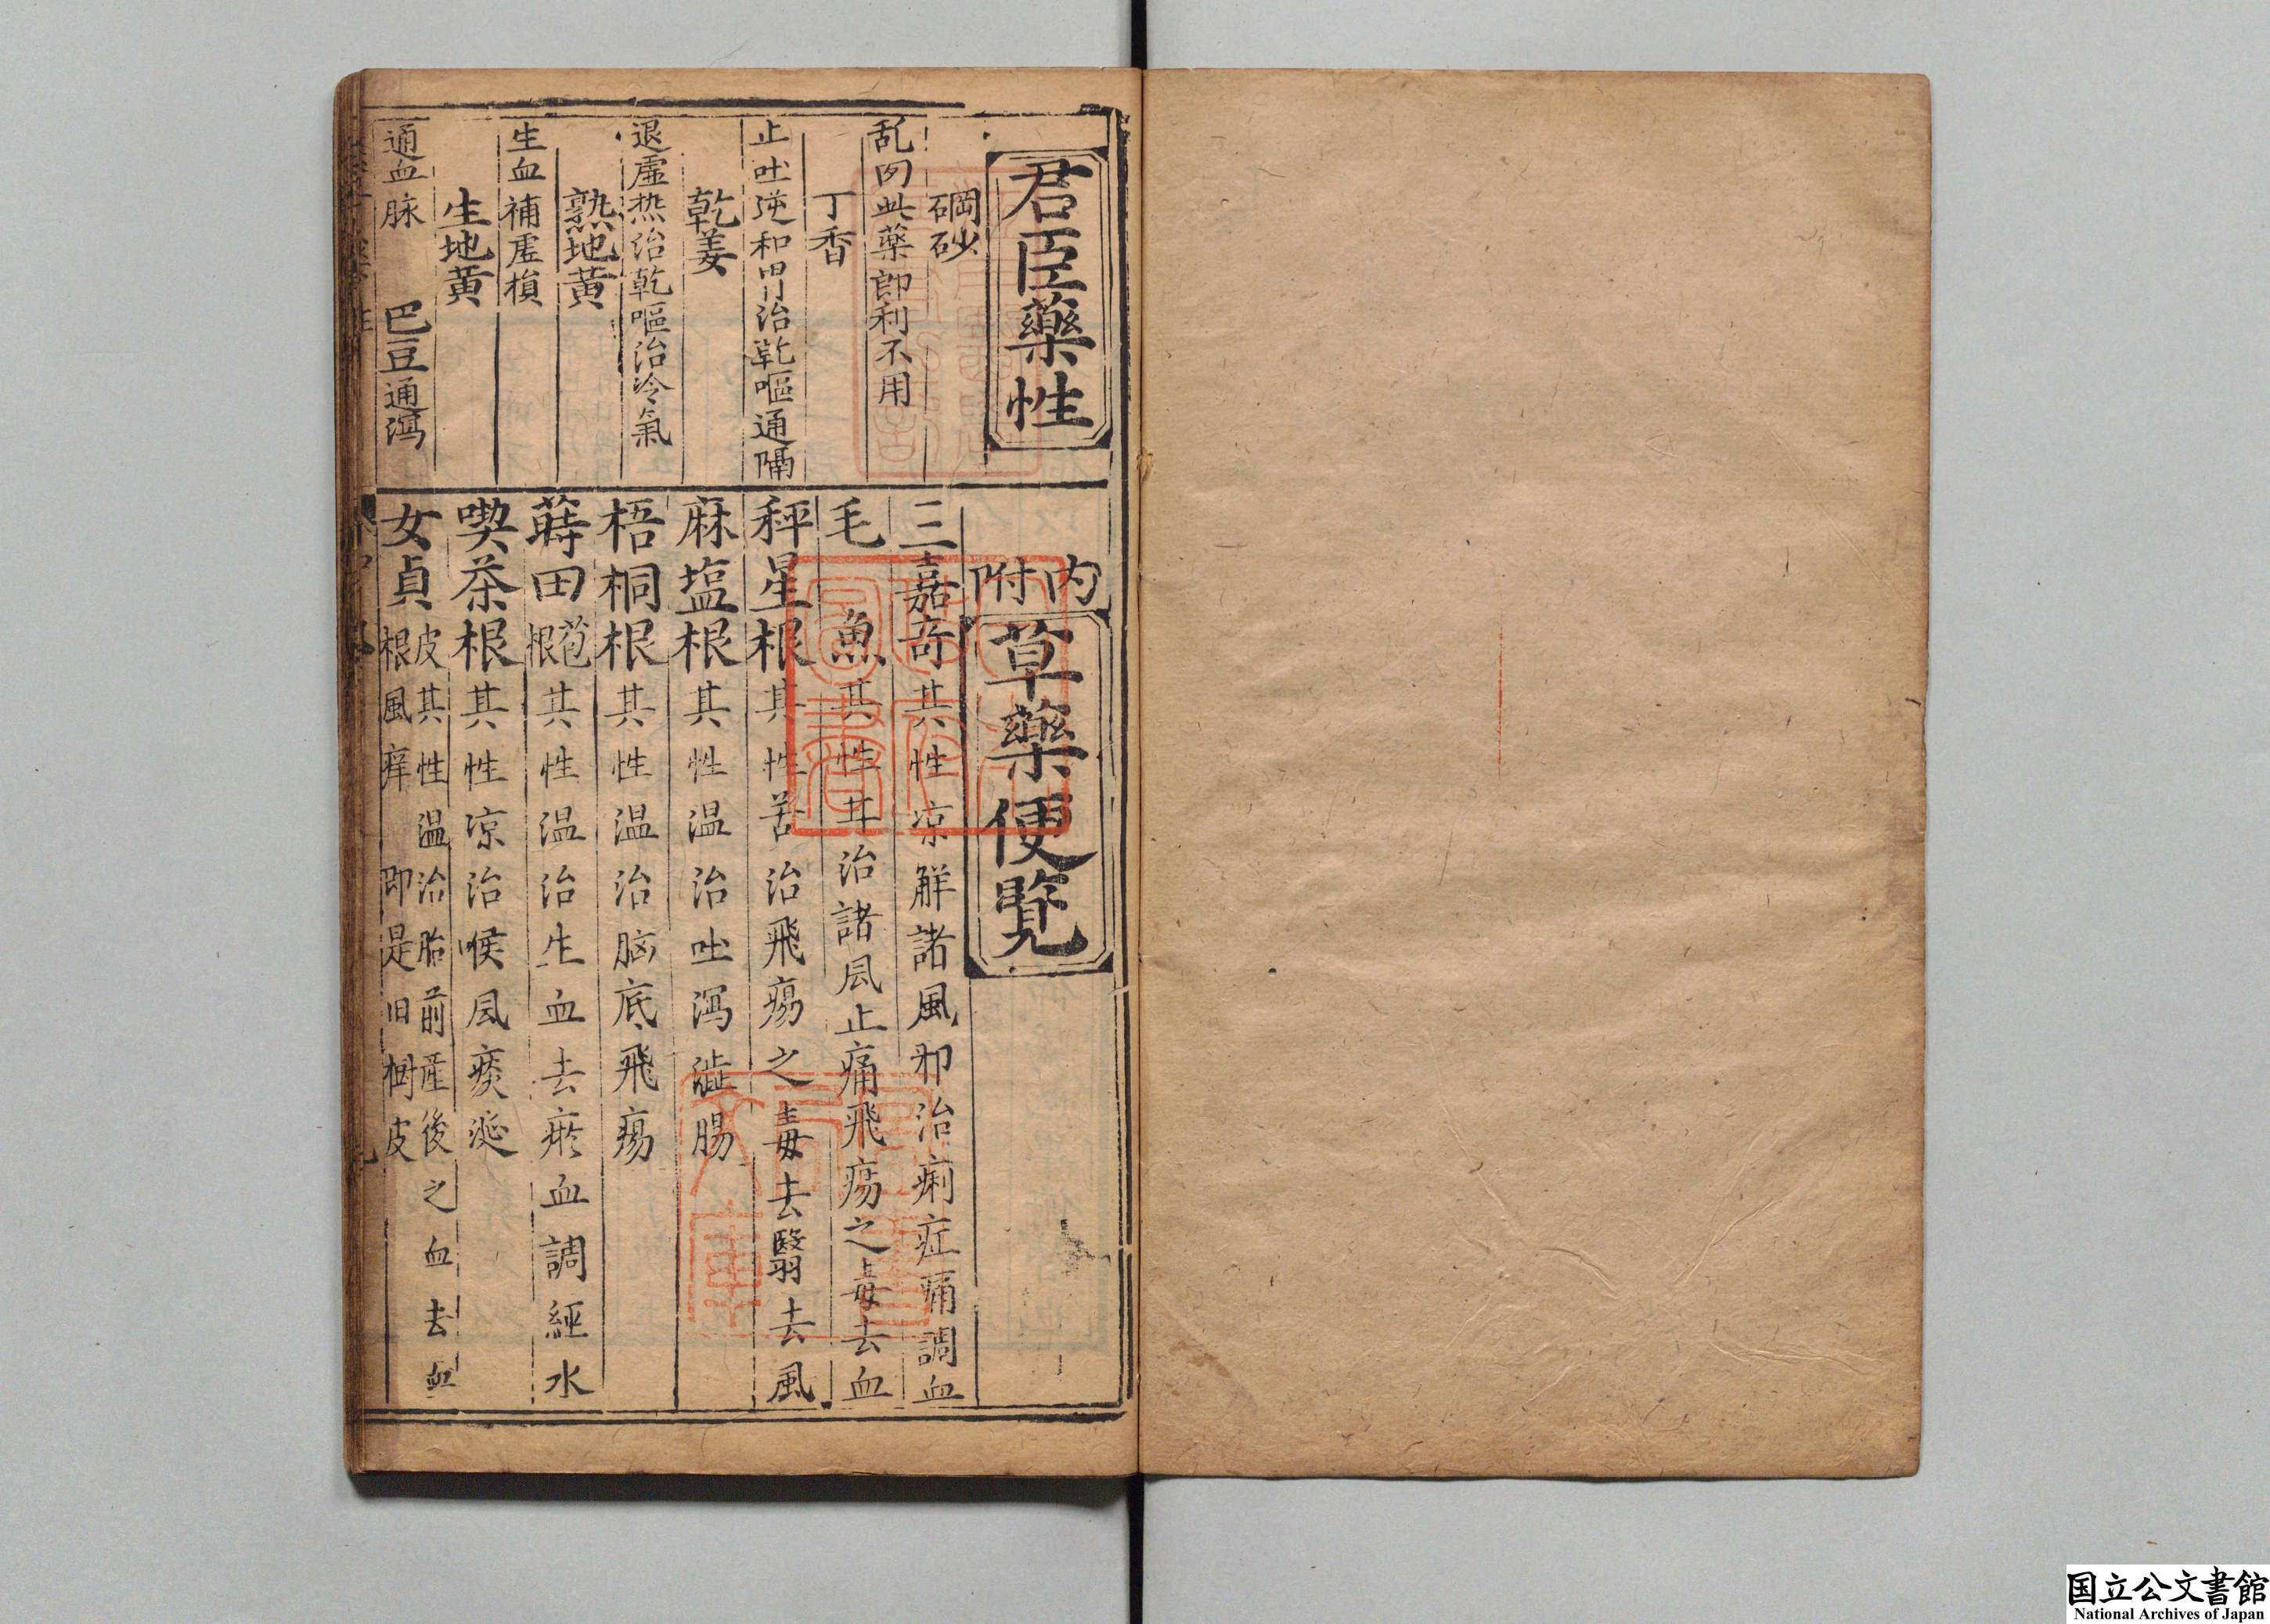 君臣藥性
碙砂
乱肉此藥即利不用
丁香
止吐逆和胃治乹嘔通膈
乾姜
退虛热治乾嘔治冷氣
熟地黃
生血補虛損
生地黃
通血脉 巴豆通瀉
內附
草藥便覽
三嘉奇其性凉解諸風邪治痢症痛調血
毛 魚其性甘治諸風止痛飛瘍之毒去血
秤星根其性苦治飛瘍之毒去翳去風
麻塩根其性温治吐瀉澁腸
梧桐根其性温治脳底飛瘍
蒔田苞根其性温治生血去瘀血調經水
喫茶根其性凉治喉風痰涎
女貞皮其性温治胎前產後之血去血
根風痒 即是旧樹皮
国立公文書館
National Archives of Japan